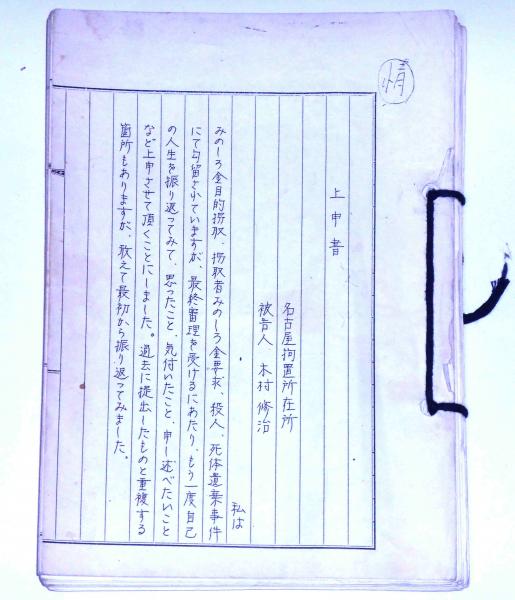 情
上申書
名古屋拘置所在所
被告人 木村修治
私は
みのしろ金目的拐取、拐取者みのしろ金要求、殺人、死体遺棄事件
にて勾留されていますが、最終審理を受けるにあたり、もう一度自己
の人生を振り返ってみて、思ったこと、気付いたこと、申し述べたいこと
など上申させて頂くことにしました。過去に提出したものと重複する
箇所もありますが、敢えて最初から振り返ってみました。